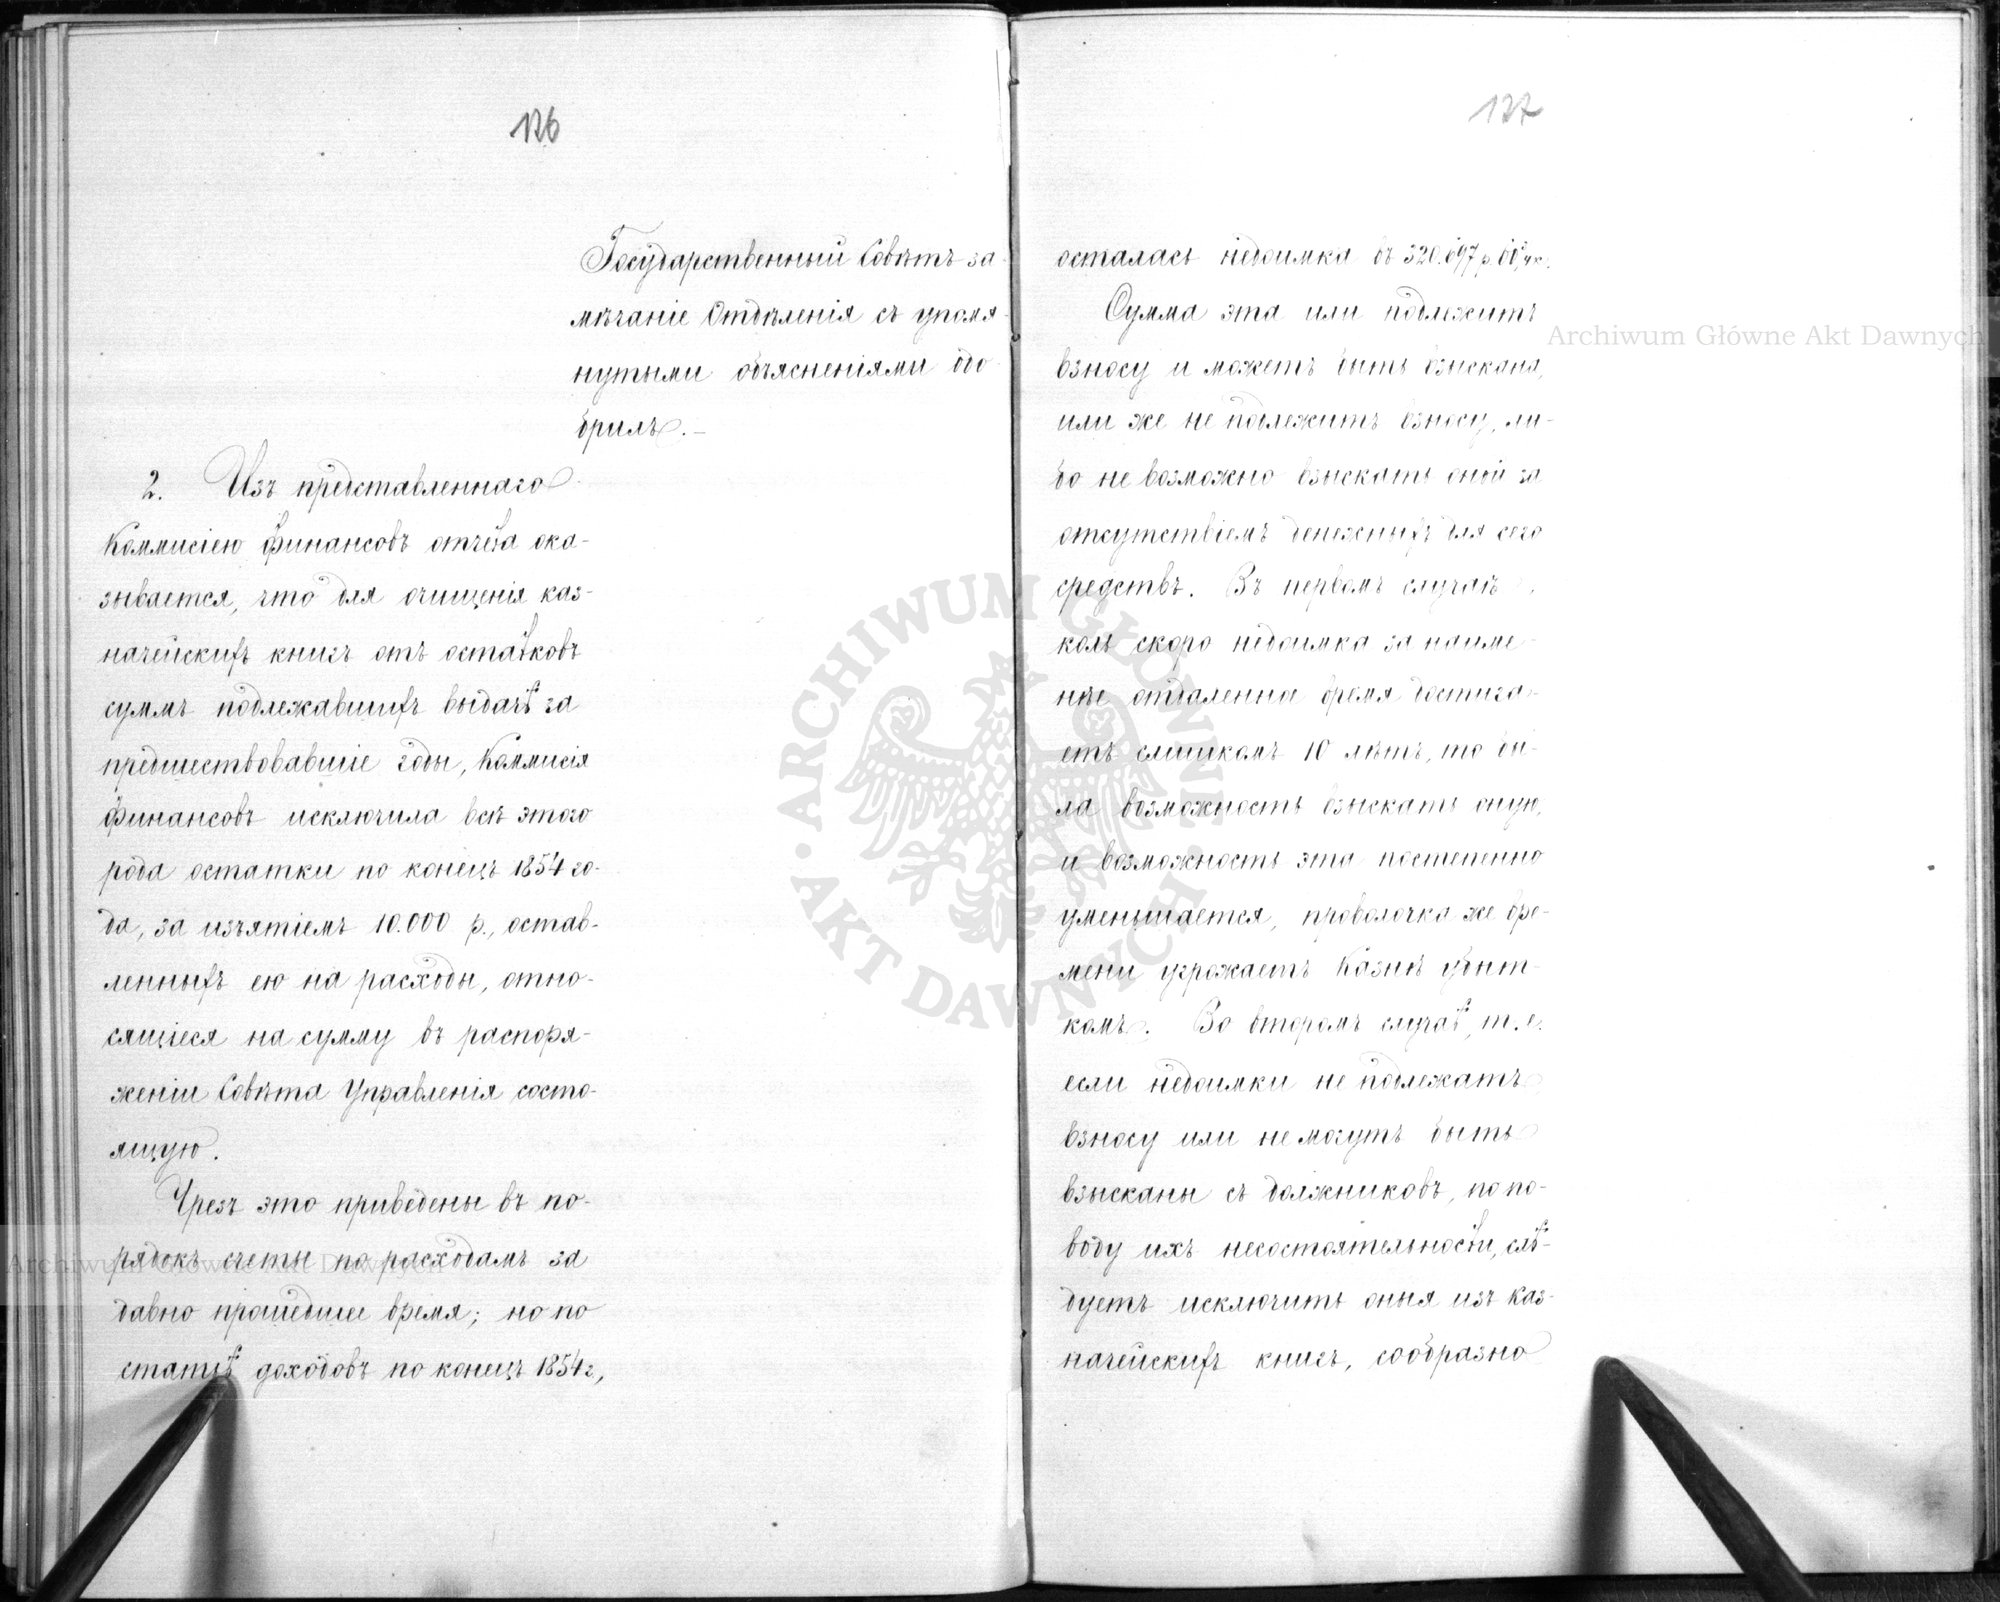 126
Государственный Совѣтъ за-
мѣчаніе Отдѣленія съ упомя-
нутыми объясненіями одо-
брилъ.—
2. Изъ представленнаго
Коммисіею Финансовъ отчета ока-
зывается, что для очищенія каз-
начейскихъ книгъ отъ остатковъ
суммъ подлежавшихъ выдачѣ за
предшествовавшіе годы, Коммисія
Финансовъ исключила всѣ этого
рода остатки по конецъ 1854 го-
да, за изъятіемъ 10.000 р., остав-
ленныхъ ею на расходы, отно-
сящіеся на сумму въ распоря-
женіи Совѣта Управленія состо-
ящую.
Чрезъ это приведены въ по-
рядокъ счеты по расходамъ за
давно прошедшее время; но по
статьѣ доходовъ по конецъ 1854 г.,
127
осталась недоимка въ 320.697 р.
Сумма эта или подлежитъ
взносу и можетъ быть взыскана,
или же не подлежитъ взносу, ли-
бо не возможно взыскать оной за
отсутствіемъ денежныхъ для сего
средствъ. Въ первомъ случаѣ,
коль скоро недоимка за наиме-
нѣе отдаленна время достига-
етъ слишкомъ 10 лѣтъ, то бы-
ла возможность взыскать оную,
и возможность эта постепенно
уменьшается, проволочка же вре-
мени угрожаетъ Казнѣ убыт-
комъ. Во второмъ случаѣ, т. е.
если недоимки не подлежатъ
взносу или не могутъ быть
взысканы съ должниковъ, по по-
воду ихъ несостоятельности, слѣ-
дуетъ исключить оныя изъ каз-
начейскихъ книгъ, сообразно
Archiwum Główne Akt Dawnych
Archiwum Główne Akt Dawnych
ARCHIWUM GŁÓWNE AKT DAWNYCH